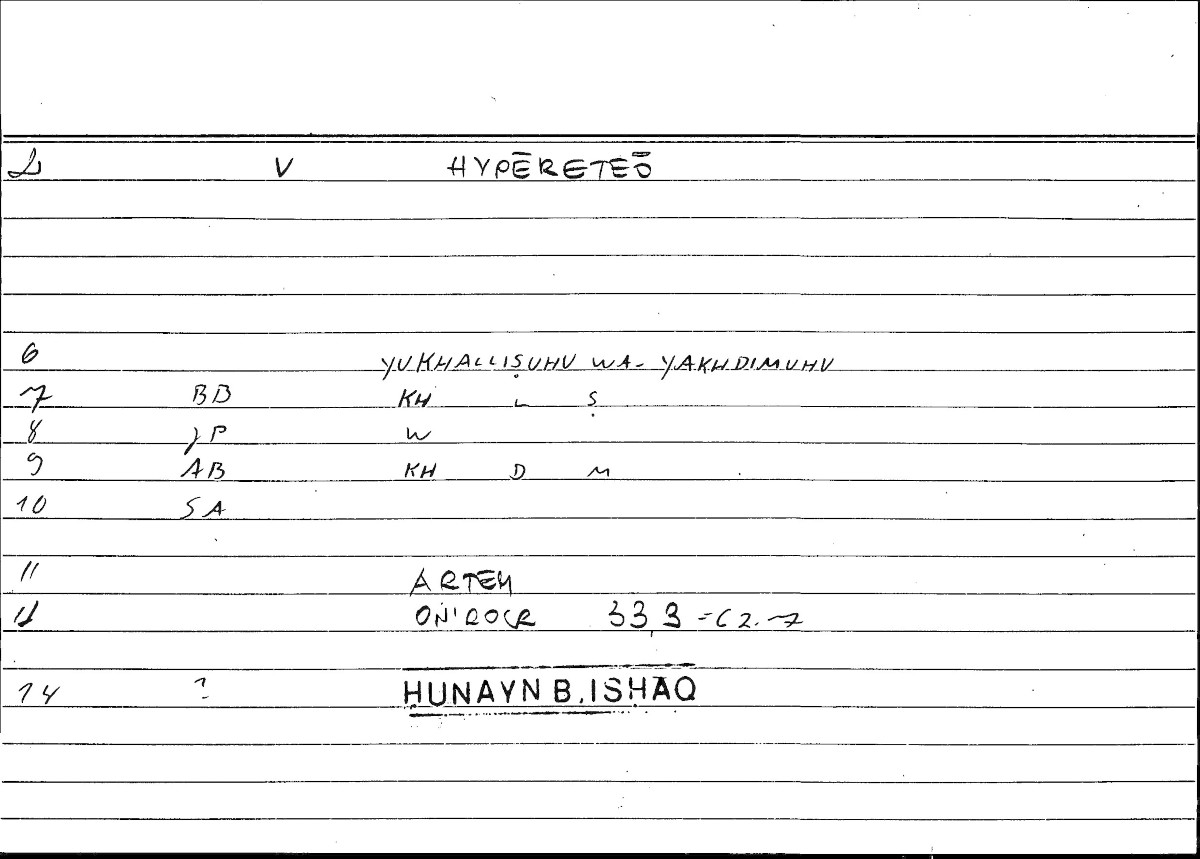 V HYPĒRETEŌ
6 YUKHALLIṢUHU WA- YAKHDIMUHU
7 BB KH L Ṣ
8 P W
9 AB KH D M
10 SA
11 ARTEM
ONIROCR 33,3
14 ? ḤUNAYN B. ISḤĀQ